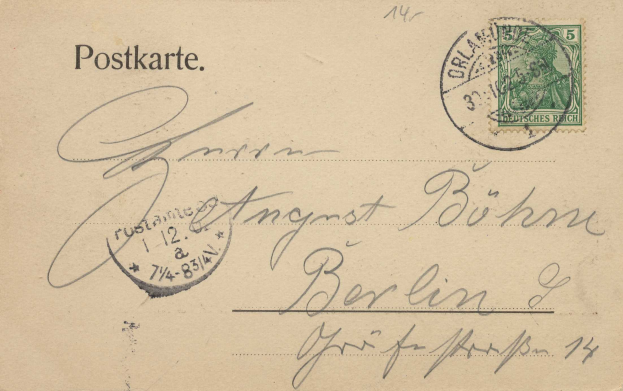 14.-
Postkarte.
ORLAMÜNDE
5
DEUTSCHES REICH
Herrn
August Böhme
Berlin S
Gräfestraße 14
Postamte
1 12.
a
* 7¼-8¾V. *